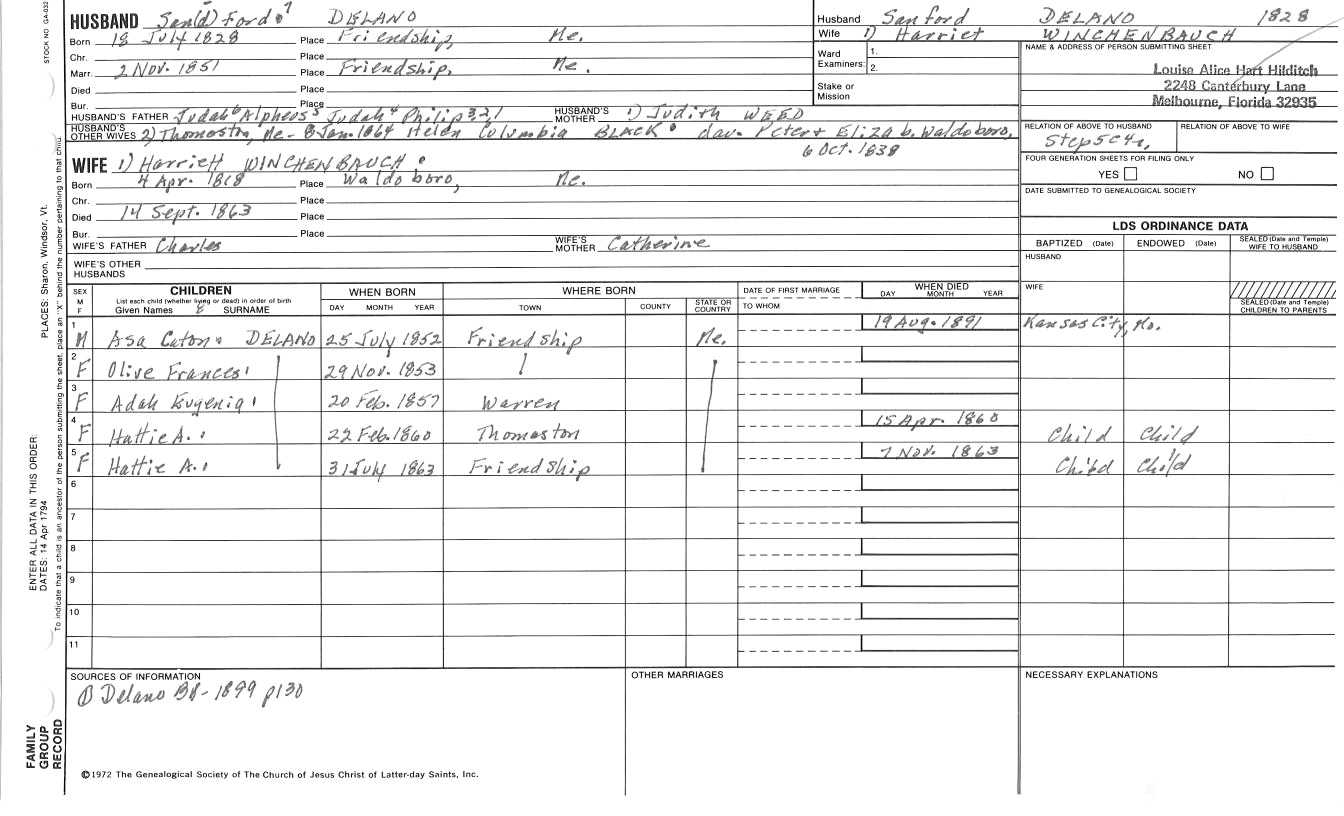 STOCK NO GA-032
HUSBAND San(d) Ford 7 DELANO
Born 18 July 1828 Place Friendship, Me.
Chr. Place
Marr. 2 Nov. 1851 Place Friendship, Me.
Died Place
Bur. Place
HUSBAND'S FATHER Judah 6 Alpheos 5 Judah 4 Philip 3,2,1 HUSBAND'S MOTHER 1) Judith WEED
HUSBAND'S OTHER WIVES 2) Thomaston, Me - 8 Jan. 1864 Helen Columbia BLACK dau. Peter + Eliza b. Waldoboro,
6 Oct. 1838
WIFE 1) Harriett WINCHENBAUCH
Born 4 Apr. 1818 Place Waldoboro, Me.
Chr. Place
Died 14 Sept. 1863 Place
Bur. Place
WIFE'S FATHER Charles WIFE'S MOTHER Catherine
WIFE'S OTHER HUSBANDS
Husband Sanford DELANO 1828
Wife 1) Harriet WINCHENBAUCH
Ward 1.
Examiners: 2.
Stake or
Mission
NAME & ADDRESS OF PERSON SUBMITTING SHEET
Louise Alice Hart Hilditch
2248 Canterbury Lane
Melbourne, Florida 32935
RELATION OF ABOVE TO HUSBAND RELATION OF ABOVE TO WIFE
Step5C4r,
FOUR GENERATION SHEETS FOR FILING ONLY
YES NO
DATE SUBMITTED TO GENEALOGICAL SOCIETY
LDS ORDINANCE DATA
BAPTIZED (Date) ENDOWED (Date) SEALED (Date and Temple) WIFE TO HUSBAND
HUSBAND
WIFE
SEALED (Date and Temple) CHILDREN TO PARENTS
SEX M F CHILDREN WHEN BORN WHERE BORN DATE OF FIRST MARRIAGE WHEN DIED
List each child (whether living or dead) in order of birth
Given Names & SURNAME DAY MONTH YEAR TOWN COUNTY STATE OR COUNTRY TO WHOM DAY MONTH YEAR
1 M Asa Caton DELANO 25 July 1852 Friendship Me. 19 Aug. 1891 Kansas City, Mo.
2 F Olive Frances 29 Nov. 1853
3 F Adah Eugenia 20 Feb. 1857 Warren
4 F Hattie A. 22 Feb. 1860 Thomaston 15 Apr. 1860 Child Child
5 F Hattie A. 31 July 1863 Friendship 7 Nov. 1863 Child Child
6
7
8
9
10
11
SOURCES OF INFORMATION OTHER MARRIAGES NECESSARY EXPLANATIONS
① Delano BK - 1899 p130
©1972 The Genealogical Society of The Church of Jesus Christ of Latter-day Saints, Inc.
PLACES: Sharon, Windsor, Vt.
ENTER ALL DATA IN THIS ORDER:
DATES: 14 Apr 1794
To indicate that a child is an ancestor of the person submitting the sheet, place an "X" behind the number pertaining to that child.
FAMILY
GROUP
RECORD